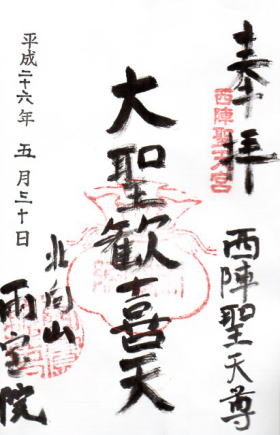 奉拝
西陣聖天宮
西陣聖天尊
大聖歓喜天
北向山
雨宝院
平成二十六年 五月三十日